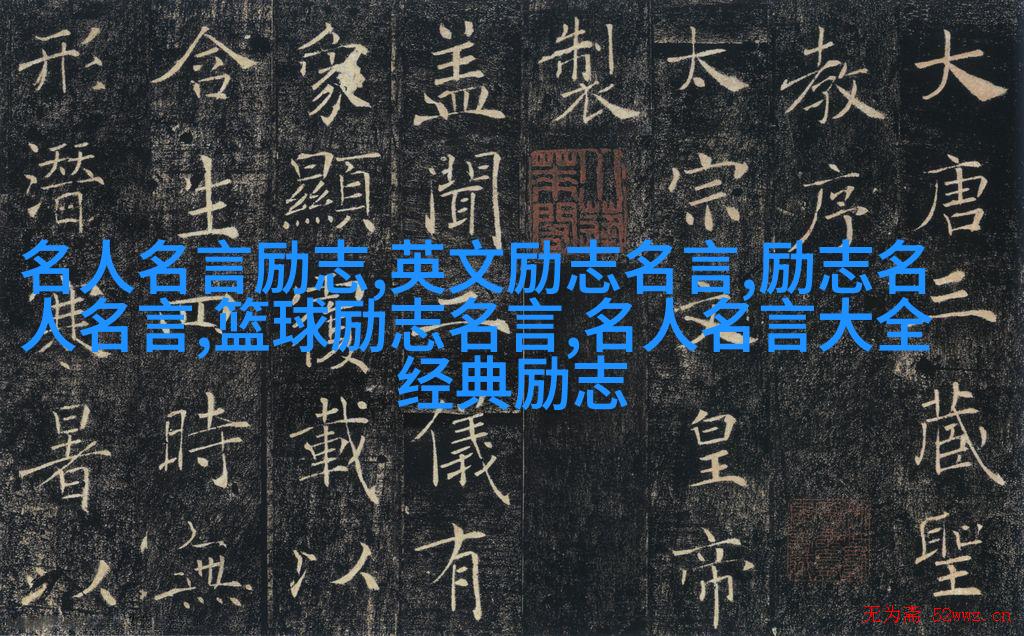 大唐三藏聖
教序
太宗皇帝
製
盖聞二儀有
象顯覆載以
含生時無
形潛暑以
名人名言励志,英文励志名言,励志名
人名言,篮球励志名言,名人名言大全
经典励志
无为斋 52wwz.cn